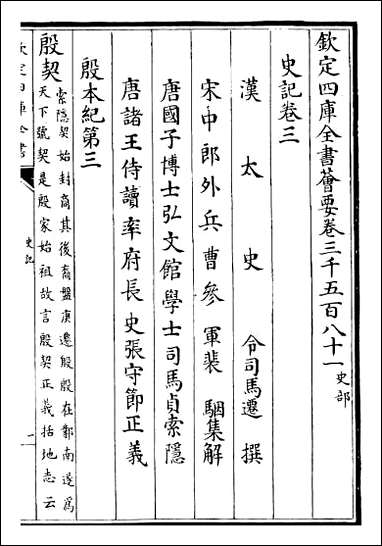 欽定四庫全書薈要卷三千五百八十一史部
史記卷三
漢太史令司馬遷撰
宋中郎外兵曹參軍裴駰集解
唐國子博士弘文館學士司馬貞索隱
唐諸王侍讀率府長史張守節正義
殷本紀第三
殷契索隱契始封商其後裔盤庚遷殷殷在鄴南遂為
天下號契是殷家始祖故言殷契正義括地志云
欽定四庫全書
史記
一